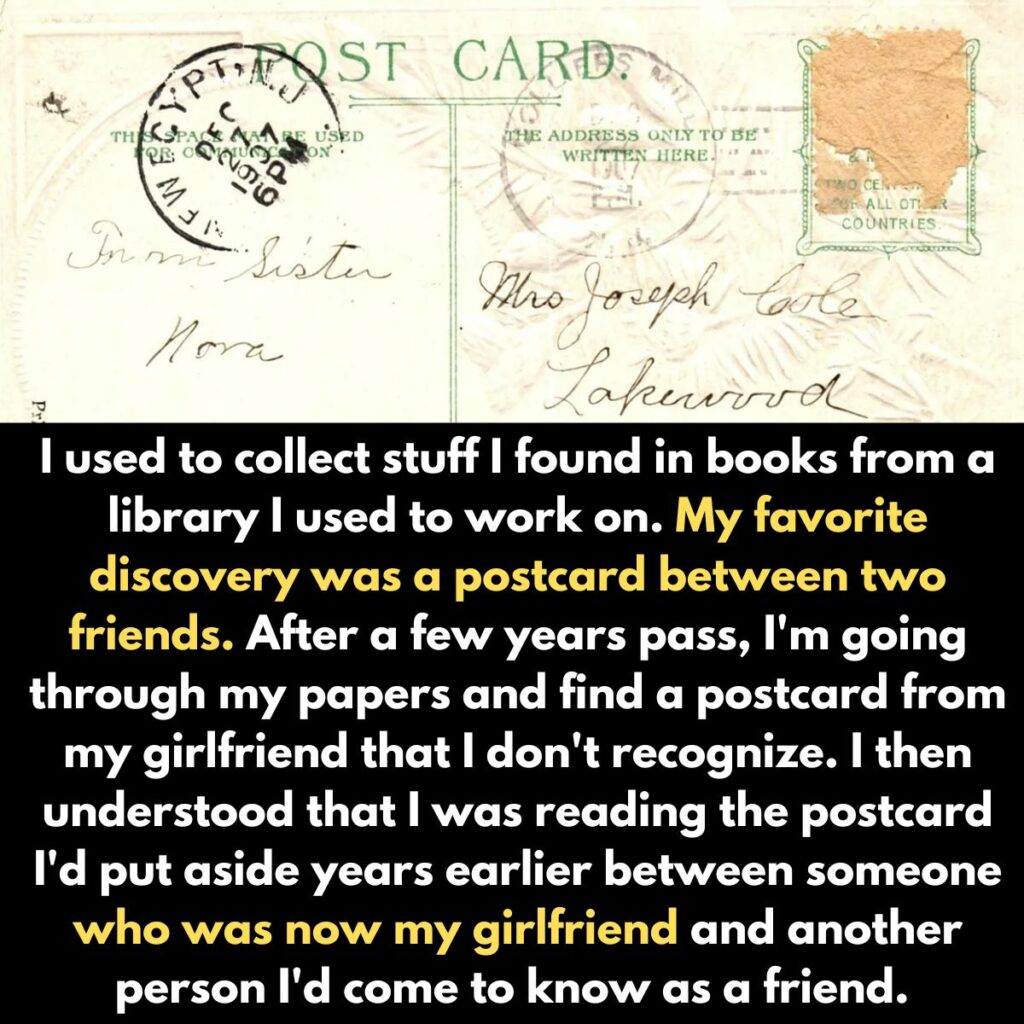 POST CARD.
NEW EGYPT, N.J.
DEC
6 PM
THIS SPACE MAY BE USED
FOR COMMUNICATION
THE ADDRESS ONLY TO BE
WRITTEN HERE.
TWO CEN
FOR ALL OTHER
COUNTRIES.
From Sister
Nora
Mrs Joseph Cole
Lakewood
I used to collect stuff I found in books from a
library I used to work on. My favorite
discovery was a postcard between two
friends. After a few years pass, I'm going
through my papers and find a postcard from
my girlfriend that I don't recognize. I then
understood that I was reading the postcard
I'd put aside years earlier between someone
who was now my girlfriend and another
person I'd come to know as a friend.